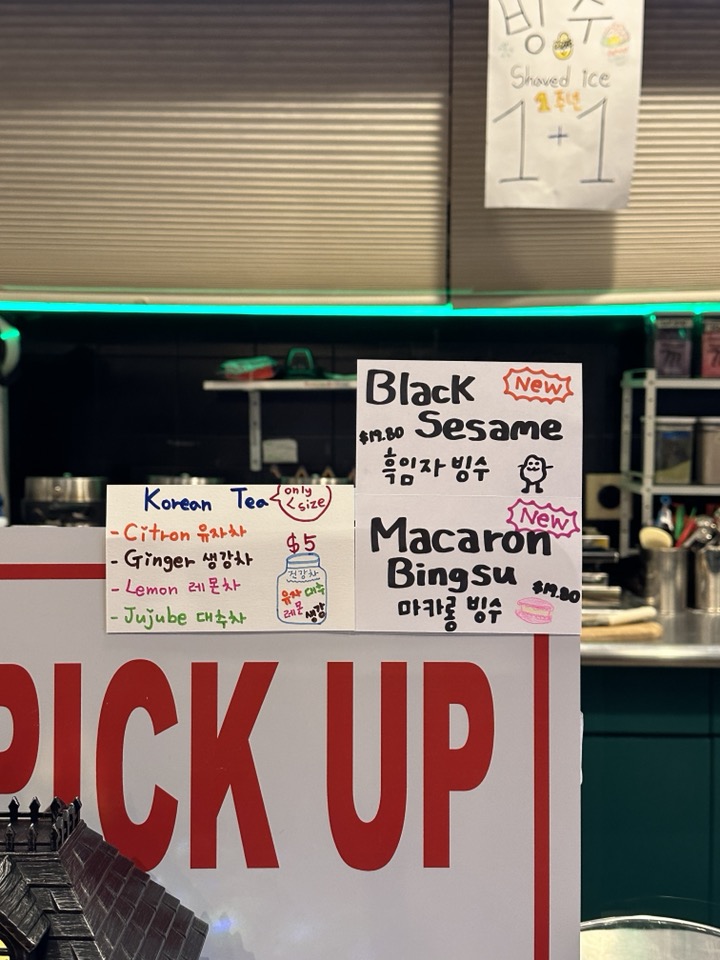 빙수
Shaved ice
1주년
1+1
Black New
$19.80 Sesame
흑임자 빙수
New
Macaron
Bingsu
$19.80
마카롱 빙수
Korean Tea only L size
- Citron 유자차
- Ginger 생강차
- Lemon 레몬차
- Jujube 대추차
$5
건강차
유자 대추
레몬 생강
PICK UP